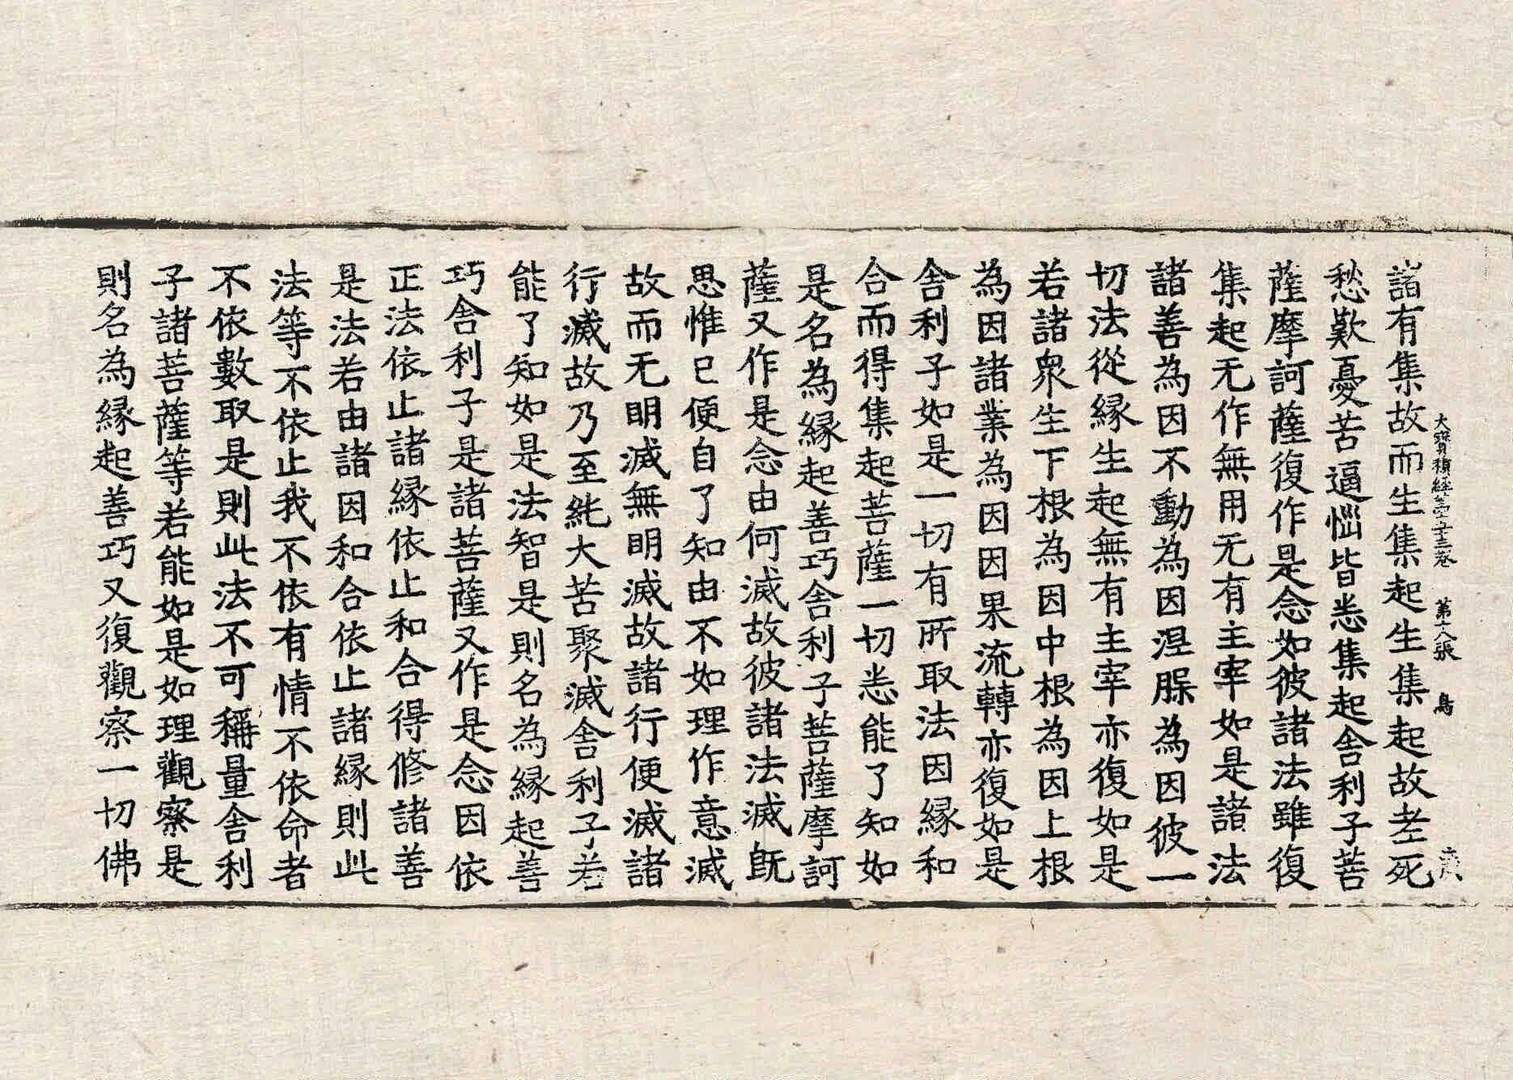 大寶積經 第五十三卷 第十八張 鳥
諸有集故而生集起生集起故老死
愁歎憂苦逼惱皆悉集起舍利子菩
薩摩訶薩復作是念如彼諸法雖復
集起无作無用无有主宰如是諸法
諸善為因不動為因涅槃為因彼一
切法從緣生起無有主宰亦復如是
若諸衆生下根為因中根為因上根
為因諸業為因因果流轉亦復如是
舍利子如是一切有所取法因緣和
合而得集起菩薩一切悉能了知如
是名為緣起善巧舍利子菩薩摩訶
薩又作是念由何滅故彼諸法滅既
思惟已便自了知由不如理作意滅
故而无明滅無明滅故諸行便滅諸
行滅故乃至純大苦聚滅舍利子若
能了知如是法智是則名為緣起善
巧舍利子是諸菩薩又作是念因依
正法依止諸緣依止和合得修諸善
是法若由諸因和合依止諸緣則此
法等不依止我不依有情不依命者
不依數取是則此法不可稱量舍利
子諸菩薩等若能如是如理觀察是
則名為緣起善巧又復觀察一切佛